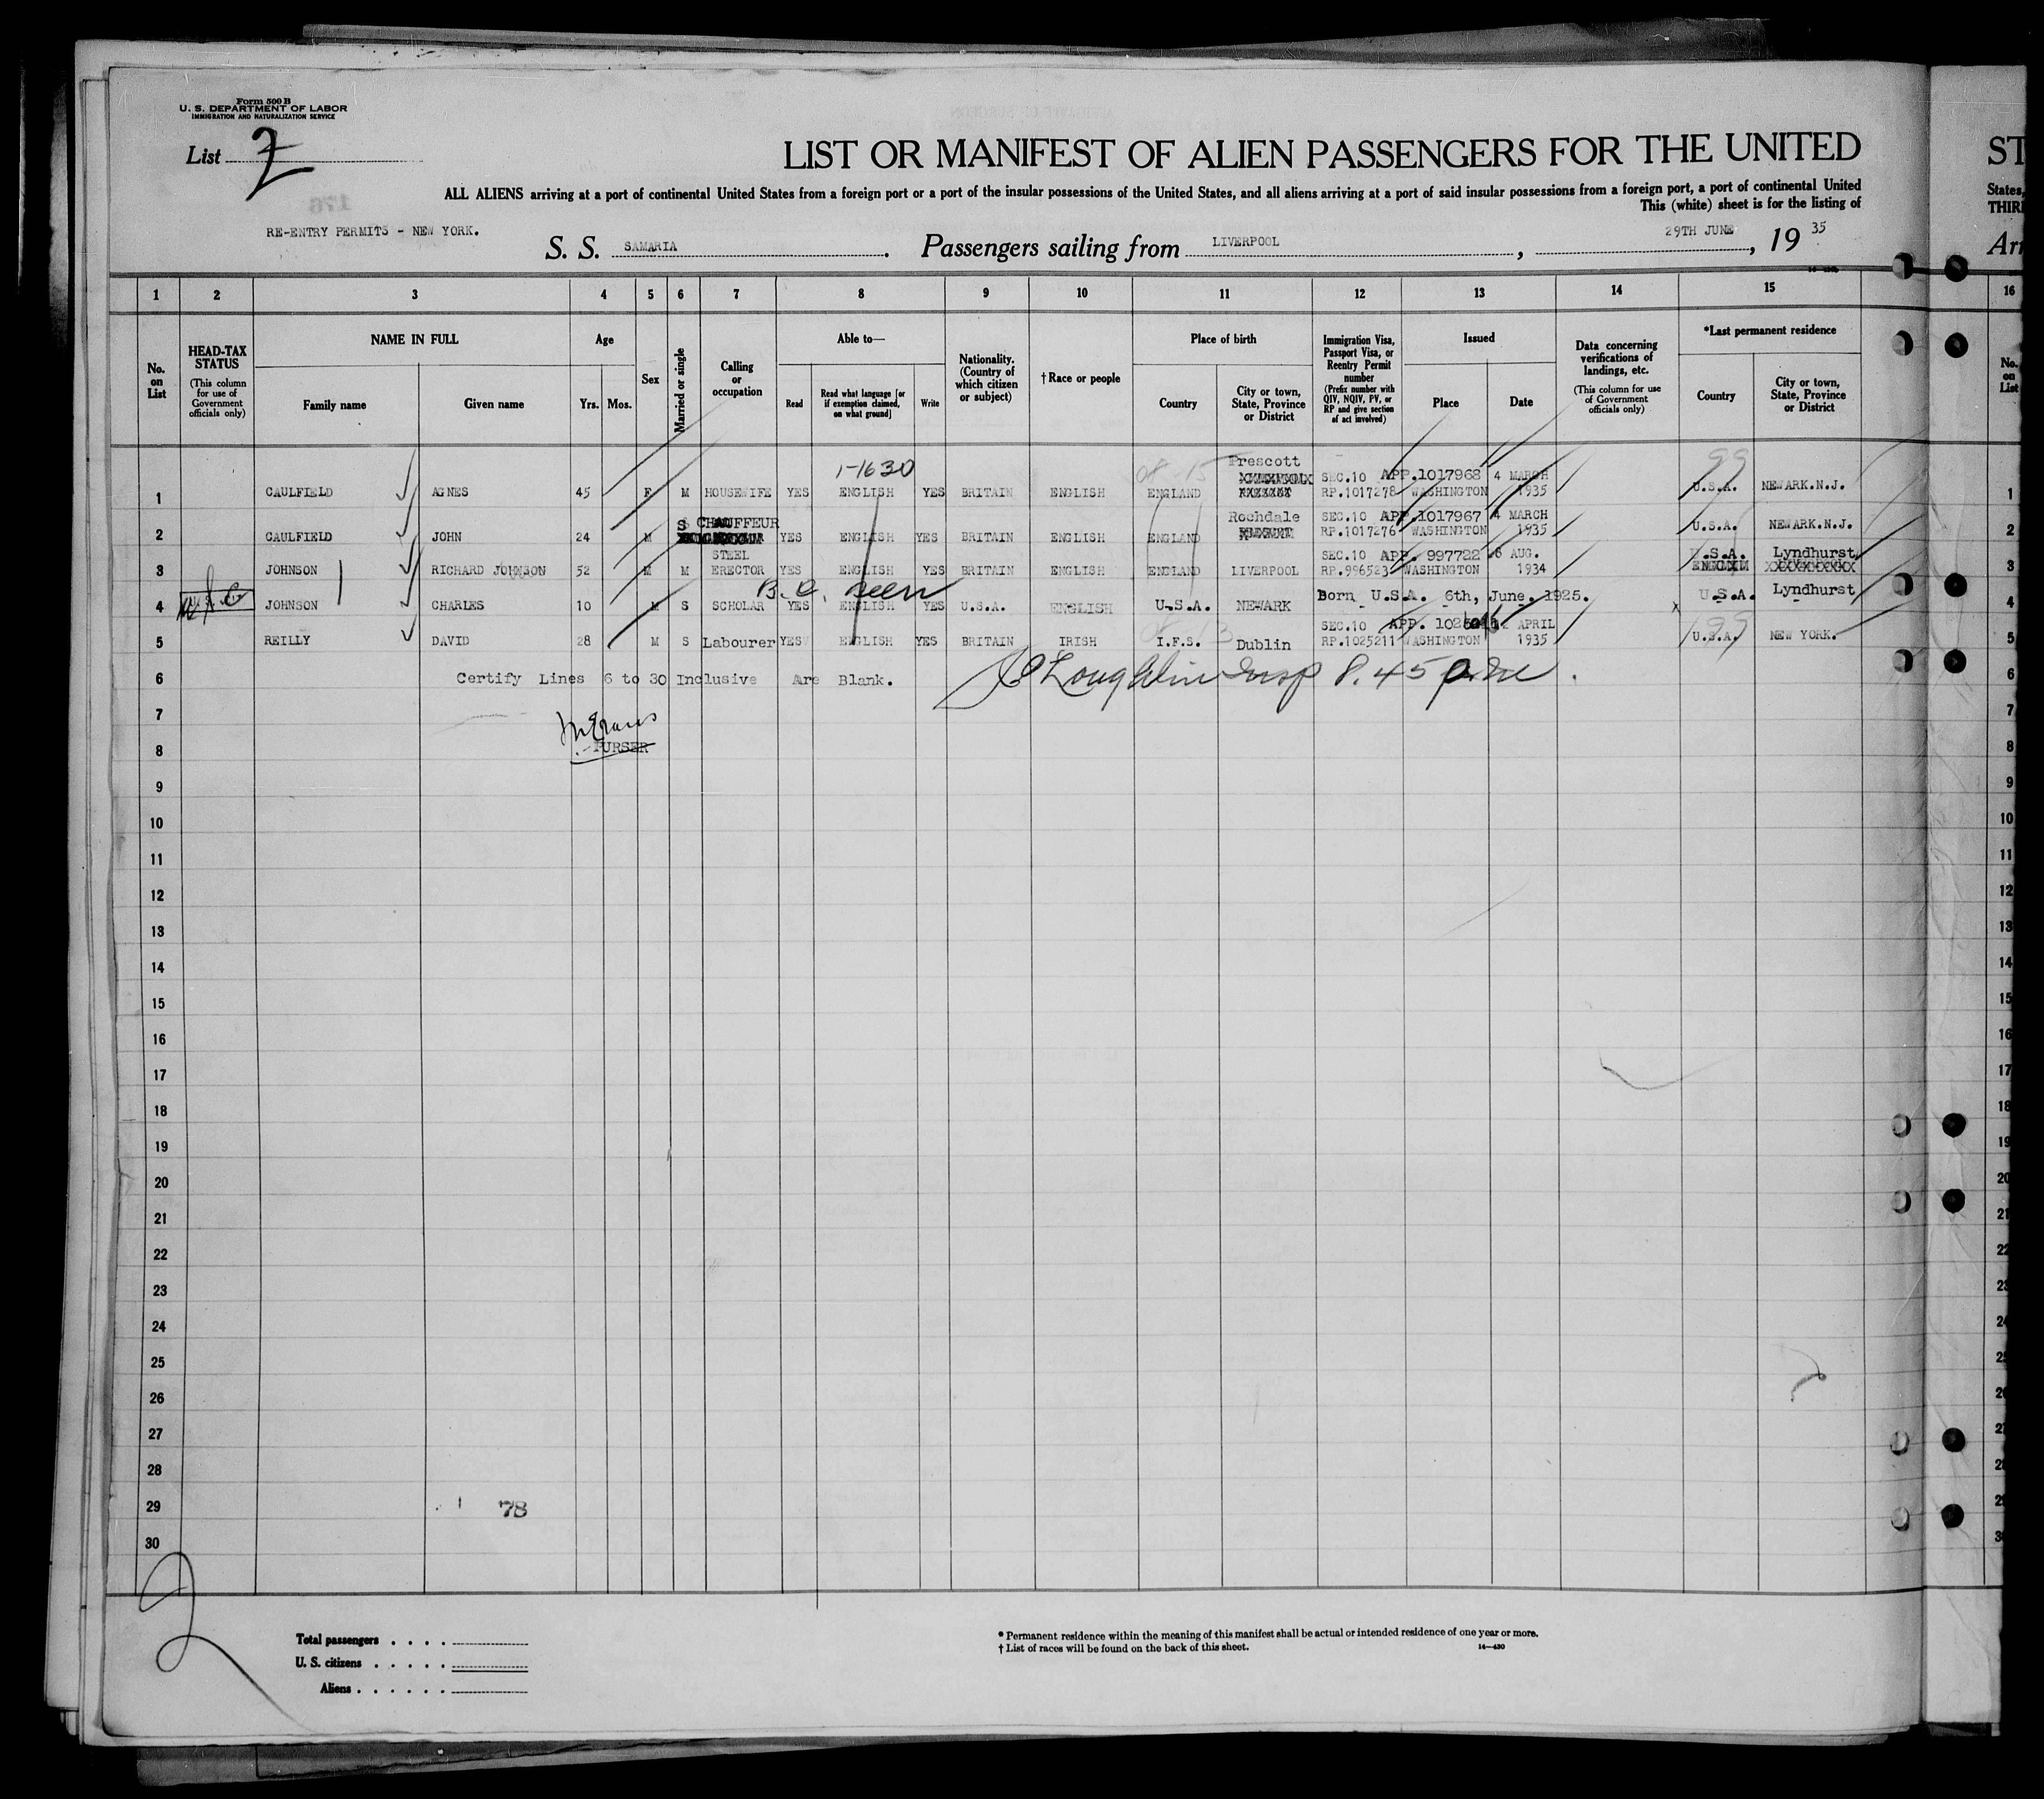 Form 500 B
U. S. DEPARTMENT OF LABOR
IMMIGRATION AND NATURALIZATION SERVICE
List 2
176
LIST OR MANIFEST OF ALIEN PASSENGERS FOR THE UNITED
ST
ALL ALIENS arriving at a port of continental United States from a foreign port or a port of the insular possessions of the United States, and all aliens arriving at a port of said insular possessions from a foreign port, a port of continental United
States,
This (white) sheet is for the listing of
THIR
RE-ENTRY PERMITS - NEW YORK.
S. S. SAMARIA. Passengers sailing from LIVERPOOL, 29TH JUNE, 1935
Arr
1 2 3 4 5 6 7 8 9 10 11 12 13 14 15 16
No. on List
HEAD-TAX STATUS (This column for use of Government officials only)
NAME IN FULL Family name Given name
Age Yrs. Mos.
Sex
Married or single
Calling or occupation
Able to— Read Read what language [or if exemption claimed, on what ground] Write
Nationality. (Country of which citizen or subject)
†Race or people
Place of birth Country City or town, State, Province or District
Immigration Visa, Passport Visa, or Reentry Permit number (Prefix number with QIV, NQIV, PV, or RP and give section of act involved)
Issued Place Date
Data concerning verifications of landings, etc. (This column for use of Government officials only)
*Last permanent residence Country City or town, State, Province or District
No. on List
1-1630 08-15 Prescott SEC.10 APP.1017968 4 MARCH 99
1 CAULFIELD AGNES 45 F M HOUSEWIFE YES ENGLISH YES BRITAIN ENGLISH ENGLAND RP.1017278 WASHINGTON 1935 U.S.A. NEWARK.N.J. 1
S CHAUFFEUR Rochdale SEC.10 APP.1017967 4 MARCH
2 CAULFIELD JOHN 24 M YES ENGLISH YES BRITAIN ENGLISH ENGLAND RP.1017276 WASHINGTON 1935 U.S.A. NEWARK.N.J. 2
STEEL SEC.10 APP. 997722 6 AUG. U.S.A. Lyndhurst
3 JOHNSON RICHARD JOHNSON 52 M M ERECTOR YES ENGLISH YES BRITAIN ENGLISH ENGLAND LIVERPOOL RP.996523 WASHINGTON 1934 3
B.C. seen
4 JOHNSON CHARLES 10 M S SCHOLAR YES ENGLISH YES U.S.A. ENGLISH U.S.A. NEWARK Born U.S.A. 6th, June. 1925. U.S.A. Lyndhurst 4
SEC.10 APP. APRIL 99
5 REILLY DAVID 28 M S Labourer YES ENGLISH YES BRITAIN IRISH I.F.S. Dublin RP.1025211 WASHINGTON 1935 U.S.A. NEW YORK. 5
6 Certify Lines 6 to 30 Inclusive Are Blank. Loughlin Insp 8.45 p.m. 6
7 7
8 PURSER 8
9 9
10 10
11 11
12 12
13 13
14 14
15 15
16 16
17 17
18 18
19 19
20 20
21 21
22 22
23 23
24 24
25 25
26 26
27 27
28 28
29 78 29
30 30
2
Total passengers
U. S. citizens
Aliens
* Permanent residence within the meaning of this manifest shall be actual or intended residence of one year or more.
† List of races will be found on the back of this sheet. 14—430